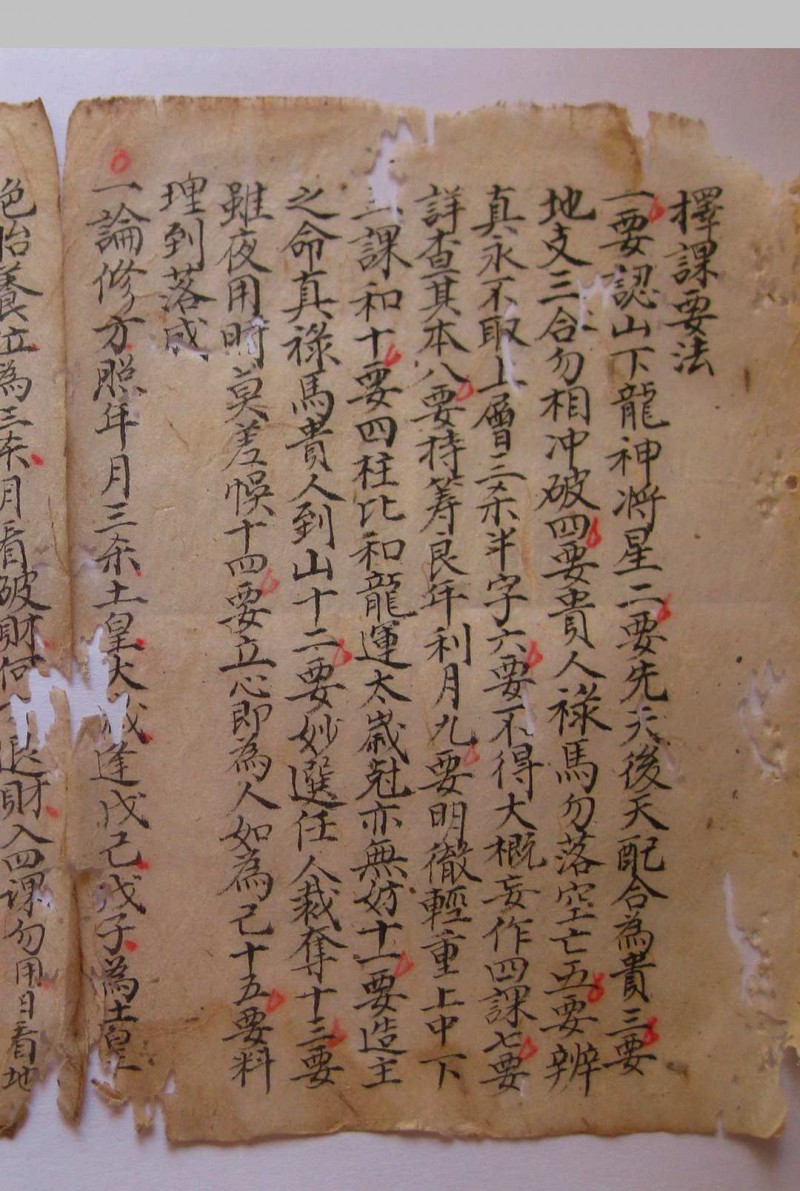 擇課要法
一要認山下龍神將星二要先天後天配合為貴三要
地支三合勿相冲破四要貴人祿馬勿落空亡五要辨
真永不取上層三杀半字六要不得大概妄作四課七要
詳查其本八要持筹良年利月九要明徹輕重上中下
三課和十要四柱比和龍運太歲尅亦無妨十一要造主
之命真祿馬貴人到山十二要妙選任人裁奪十三要
雖夜用時莫差悞十四要立心即為人如為己十五要料
理到落成
一論修方照年月三杀土皇大歲逢戊己戊子為土皇
絶胎養位為三杀月看破財何退財入四課勿用日看地